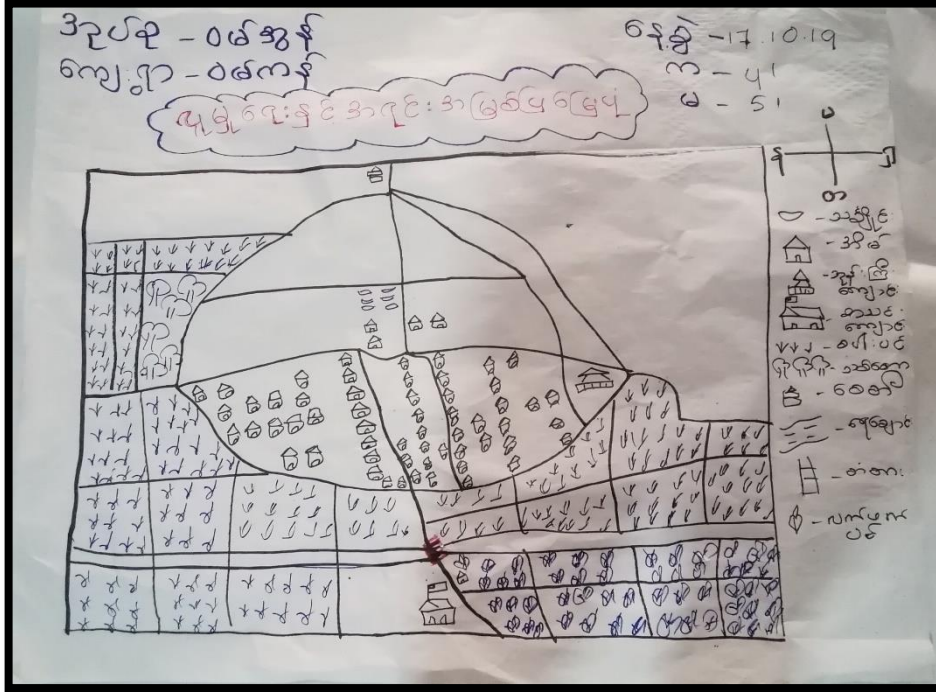 အုပ်စု - ဝမ်အွန်
ကျေးရွာ - ဝမ်ကန်
နေ့စွဲ - 17.10.19
က - ၄၊
မ - ၅၊
လူမှုရေးနှင့်အရင်းအမြစ်ပြမြေပုံ
မ
န
တ
သင်္ချိုင်း
- အိမ်
ဘုန်းကြီး
ကျောင်း
စာသင်
ကျောင်း
- စပါးပင်
- သစ်တော
- စေတီ
- ရေချောင်း
- တံတား
- လက်ဖက်
ပင်